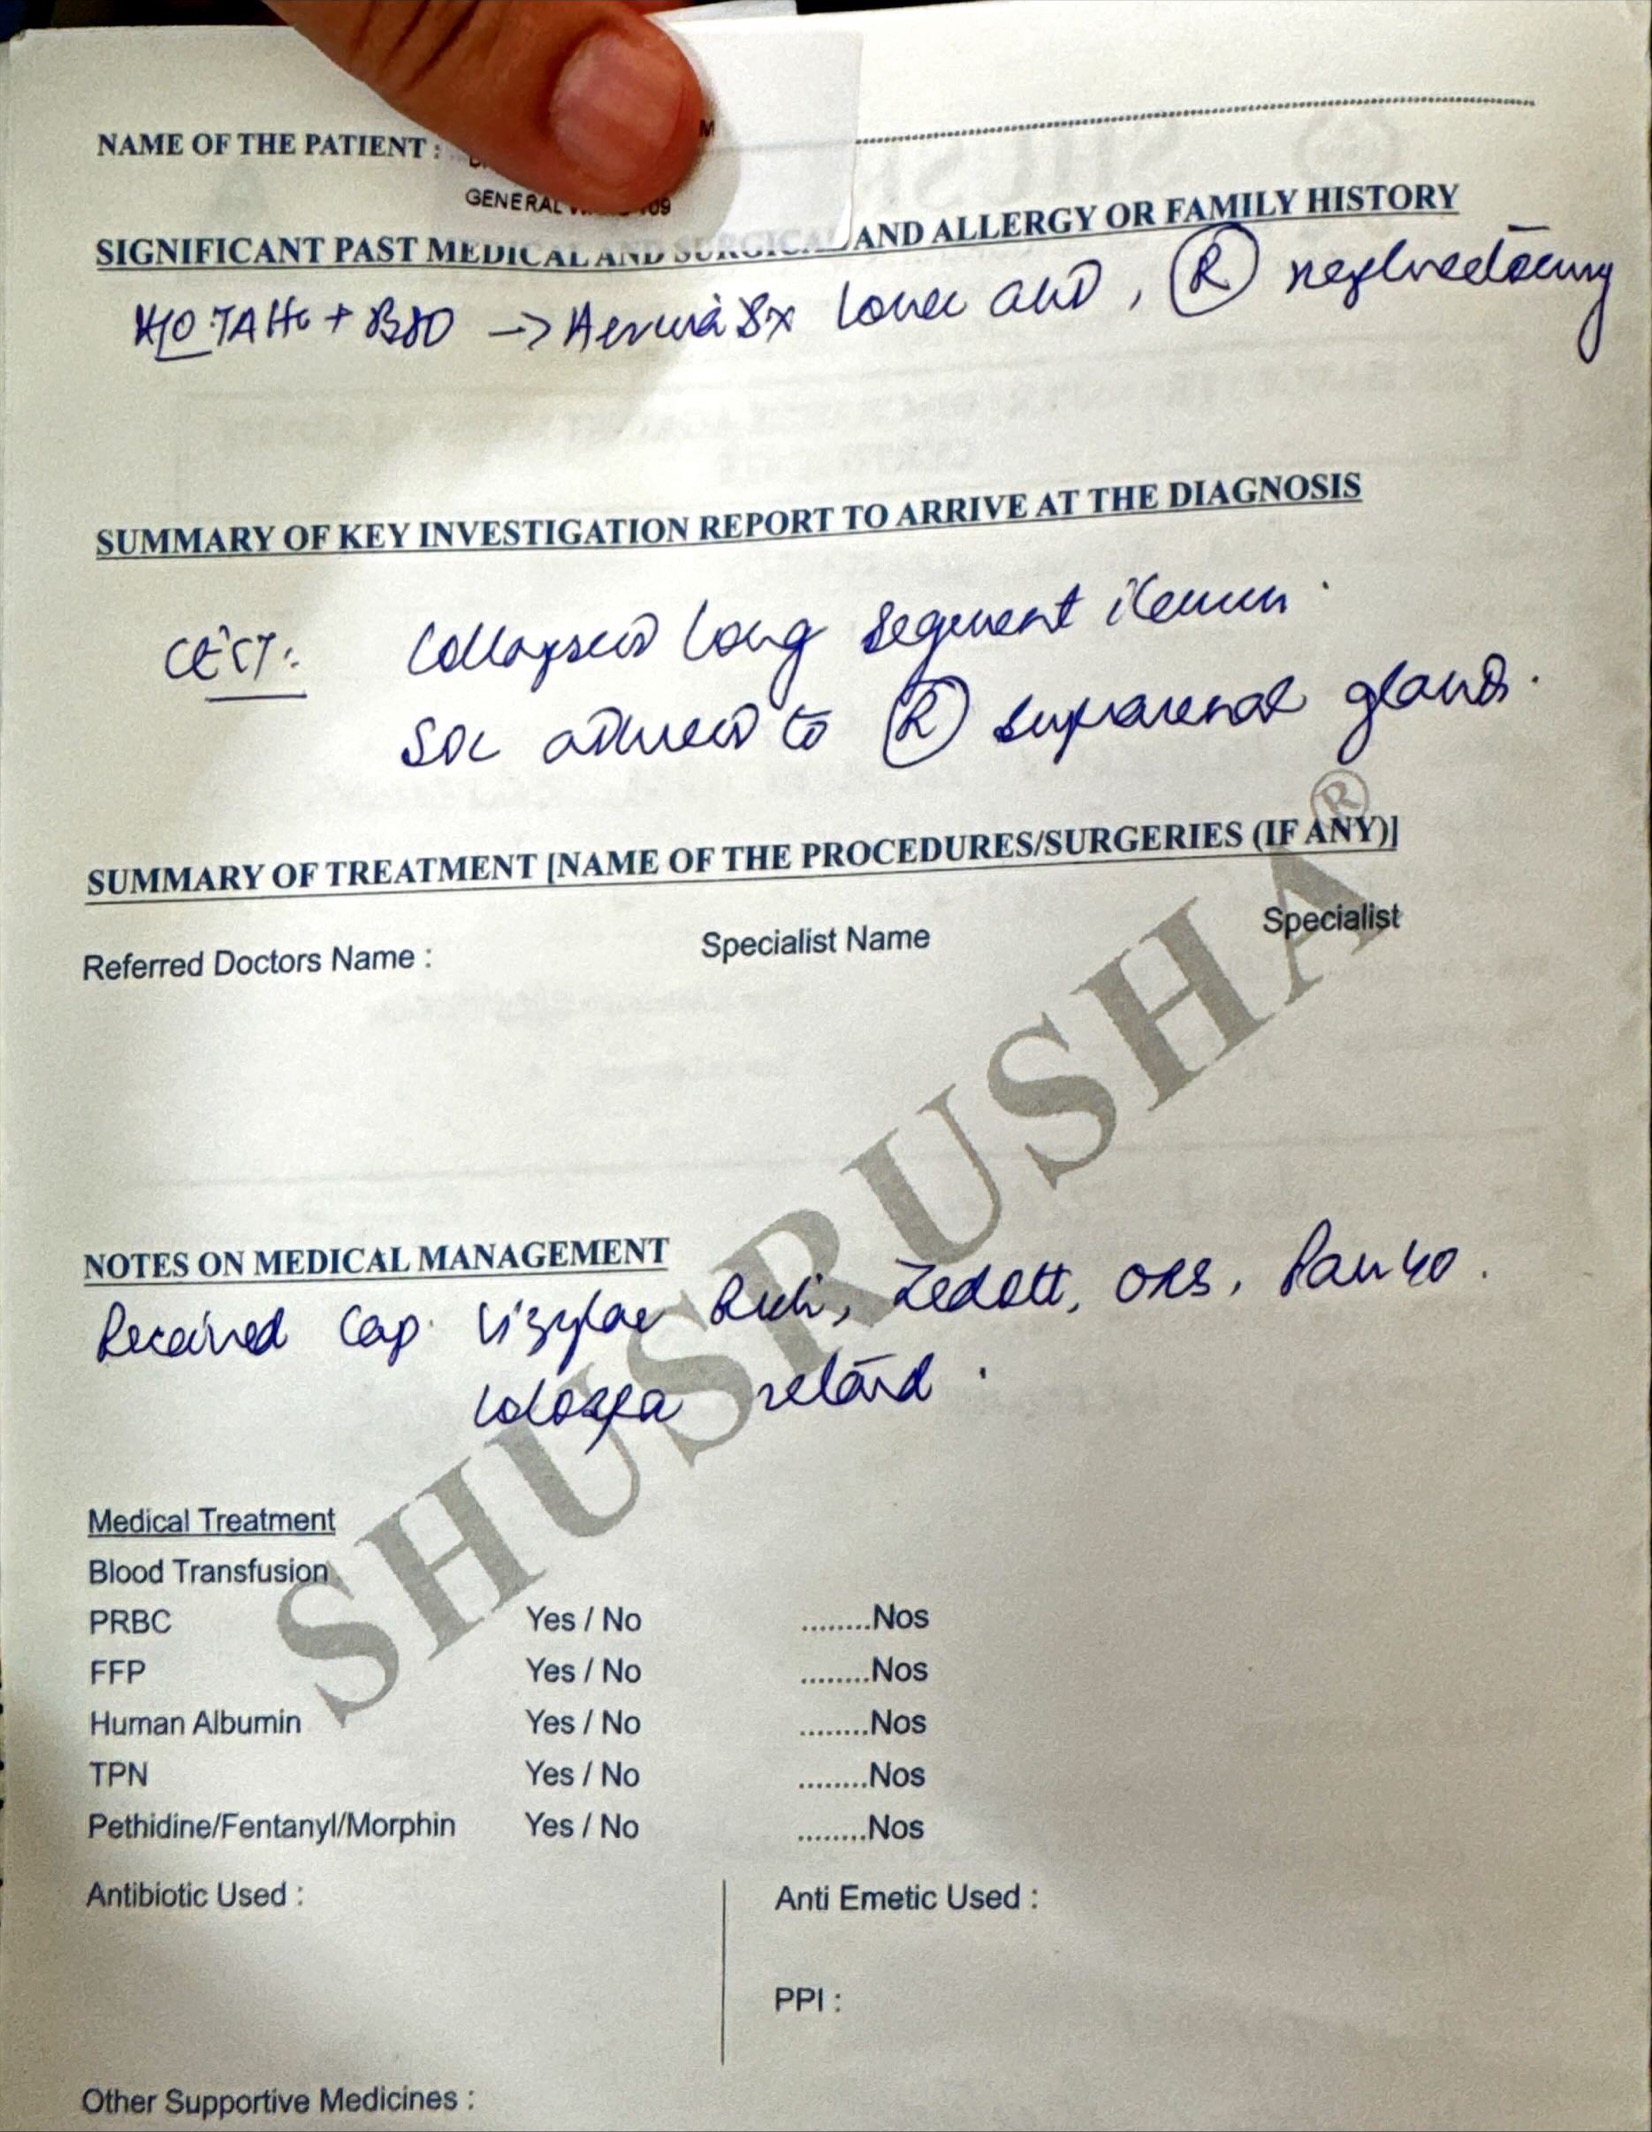 M
NAME OF THE PATIENT :
GENERAL 09
SIGNIFICANT PAST MEDICAL AND SURGICAL AND ALLERGY OR FAMILY HISTORY
H/O TAH + BSO → Hernia Sx lower abd, Ⓡ nephrectomy
SUMMARY OF KEY INVESTIGATION REPORT TO ARRIVE AT THE DIAGNOSIS
CECT: Collapsed long segment ileum.
SOL adhered to Ⓡ suprarenal gland.
SUMMARY OF TREATMENT [NAME OF THE PROCEDURES/SURGERIES (IF ANY)]
Referred Doctors Name : Specialist Name Specialist
SHUSRUSHA®
NOTES ON MEDICAL MANAGEMENT
Received Cap. Vizylac Rich, Zedott, ORS, Pan 40.
Colospa retard.
Medical Treatment
Blood Transfusion
PRBC Yes / No ........Nos
FFP Yes / No ........Nos
Human Albumin Yes / No ........Nos
TPN Yes / No ........Nos
Pethidine/Fentanyl/Morphin Yes / No ........Nos
Antibiotic Used : Anti Emetic Used :
PPI :
Other Supportive Medicines :